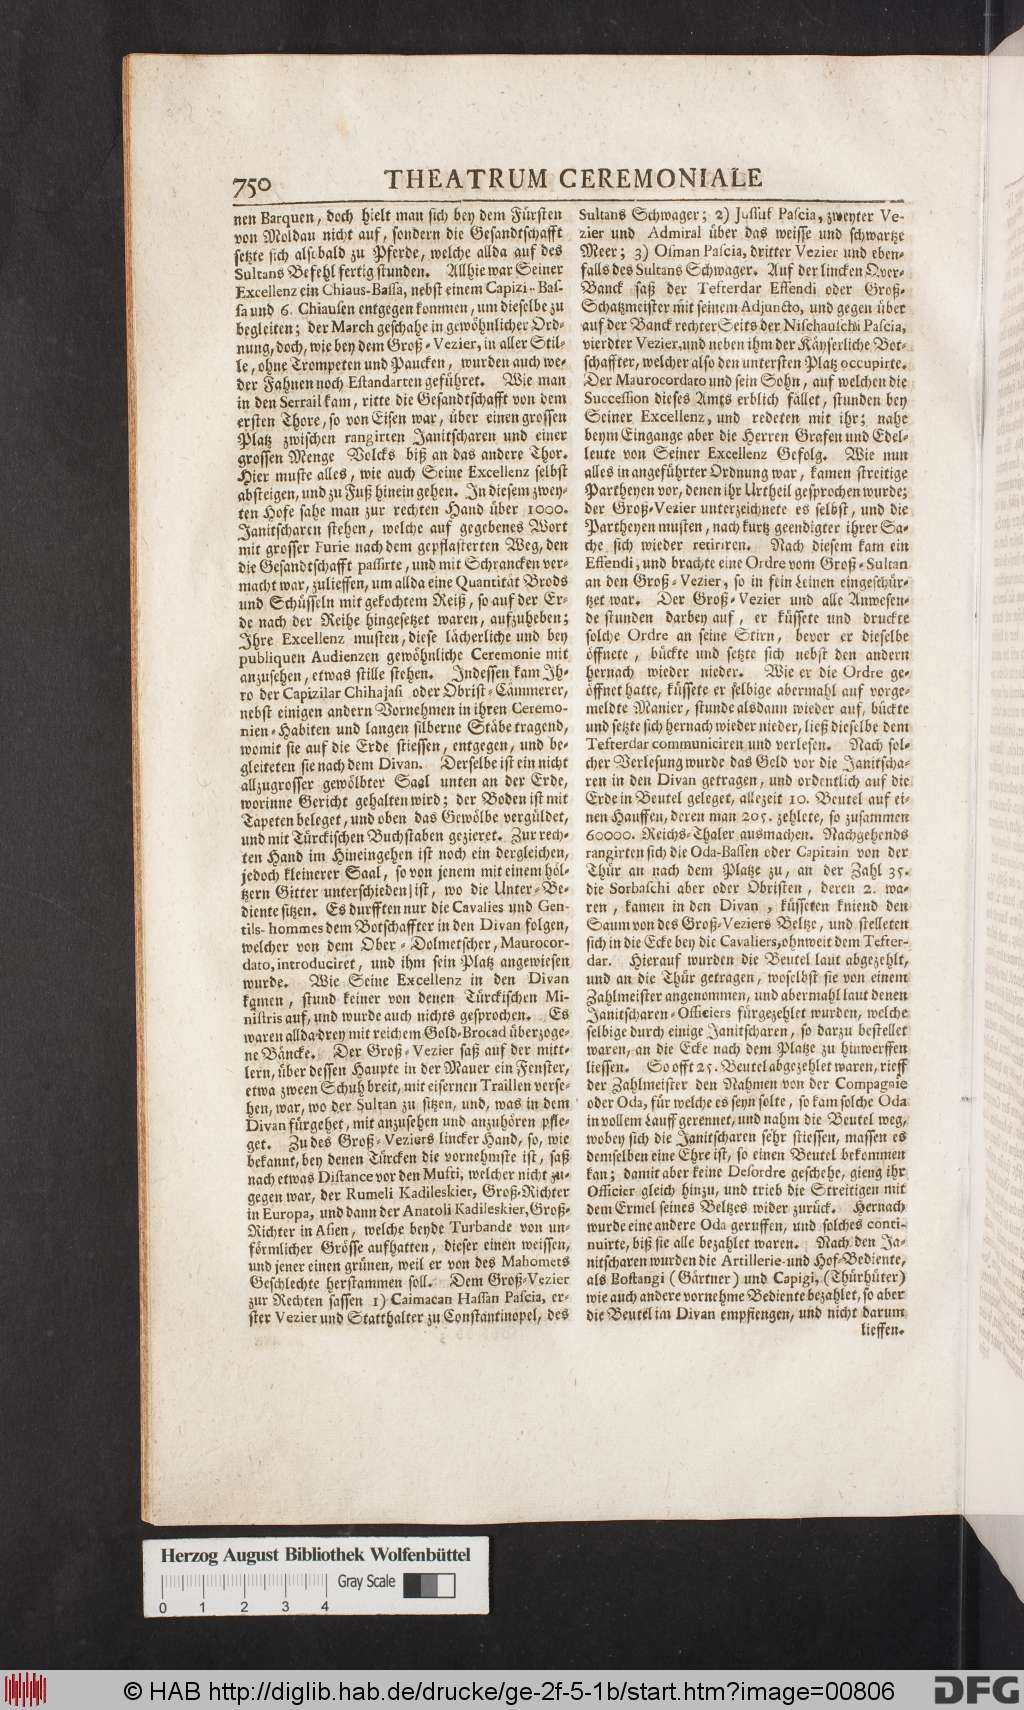 750 THEATRUM CEREMONIALE
nen Barquen, doch hielt man sich bey dem Fürsten
von Moldau nicht auf, sondern die Gesandtschafft
setzte sich alsobald zu Pferde, welche allda auf des
Sultans Befehl fertig stunden. Allhie war Seiner
Excellenz ein Chiaus-Bassa, nebst einem Capizi-Bas-
sa und 6. Chiausen entgegen kommen, um dieselbe zu
begleiten; der March geschahe in gewöhnlicher Ord-
nung, doch, wie bey dem Groß-Vezier, in aller Stil-
le, ohne Trompeten und Paucken, wurden auch we-
der Fahnen noch Estandarten geführet. Wie man
in den Serrail kam, ritte die Gesandtschafft von dem
ersten Thore, so von Eisen war, über einen grossen
Platz zwischen rangirten Janitscharen und einer
grossen Menge Volcks biß an das andere Thor.
Hier muste alles, wie auch Seine Excellenz selbst
absteigen, und zu Fuß hinein gehen. In diesem zwey-
ten Hofe sahe man zur rechten Hand über 1000.
Janitscharen stehen, welche auf gegebenes Wort
mit grosser Furie nach dem gepflasterten Weg, den
die Gesandtschafft passirte, und mit Schrancken ver-
macht war, zulieffen, um allda eine Quantität Brods
und Schüsseln mit gekochtem Reiß, so auf der Er-
de nach der Reihe hingesetzet waren, aufzuheben;
Ihre Excellenz musten, diese lächerliche und bey
publiquen Audienzen gewöhnliche Ceremonie mit
anzusehen, etwas stille stehen. Indessen kam Ih-
ro der Capizilar Chihajasi oder Obrist-Cämmerer,
nebst einigen andern Vornehmen in ihren Ceremo-
nien-Habiten und langen silberne Stäbe tragend,
womit sie auf die Erde stiessen, entgegen, und be-
gleiteten sie nach dem Divan. Derselbe ist ein nicht
allzugrosser gewölbter Saal unten an der Erde,
worinne Gericht gehalten wird; der Boden ist mit
Tapeten beleget, und oben das Gewölbe vergüldet,
und mit Türckischen Buchstaben gezieret. Zur rech-
ten Hand im Hineingehen ist noch ein dergleichen,
jedoch kleinerer Saal, so von jenem mit einem höl-
tzern Gitter unterschieden ist, wo die Unter-Be-
diente sitzen. Es durfften nur die Cavalies und Gen-
tils-hommes dem Botschaffter in den Divan folgen,
welcher von dem Ober-Dolmetscher, Maurocor-
dato, introduciret, und ihm sein Platz angewiesen
wurde. Wie Seine Excellenz in den Divan
kamen, stund keiner von denen Türckischen Mi-
nistris auf, und wurde auch nichts gesprochen. Es
waren allda drey mit reichem Gold-Brocad überzoge-
ne Bäncke. Der Groß-Vezier saß auf der mitt-
lern, über dessen Haupte in der Mauer ein Fenster,
etwa zween Schuh breit, mit eisernen Traillen verse-
hen, war, wo der Sultan zu sitzen, und, was in dem
Divan fürgehet, mit anzusehen und anzuhören pfle-
get. Zu des Groß-Veziers lincker Hand, so, wie
bekannt, bey denen Türcken die vornehmste ist, saß
nach etwas Distance vor den Mufti, welcher nicht zu-
gegen war, der Rumeli Kadileskier, Groß-Richter
in Europa, und dann der Anatoli Kadileskier, Groß-
Richter in Asien, welche beyde Turbande von un-
förmlicher Grösse aufhatten, dieser einen weissen,
und jener einen grünen, weil er von des Mahomets
Geschlechte herstammen soll. Dem Groß-Vezier
zur Rechten sassen 1) Caimacan Hassan Pascia, er-
ster Vezier und Statthalter zu Constantinopel, des
Sultans Schwager; 2) Jussuf Pascia, zweyter Ve-
zier und Admiral über das weisse und schwartze
Meer; 3) Osman Pascia, dritter Vezier und eben-
falls des Sultans Schwager. Auf der lincken Qver-
Banck saß der Tefterdar Effendi oder Groß-
Schatzmeister mit seinem Adjuncto, und gegen über
auf der Banck rechter Seits der Nischauschi Pascia,
vierdter Vezier, und neben ihm der Käyserliche Bot-
schaffter, welcher also den untersten Platz occupirte.
Der Maurocordato und sein Sohn, auf welchen die
Succession dieses Amts erblich fället, stunden bey
Seiner Excellenz, und redeten mit ihr; nahe
beym Eingange aber die Herren Grafen und Edel-
leute von Seiner Excellenz Gefolg. Wie nun
alles in angeführter Ordnung war, kamen streitige
Partheyen vor, denen ihr Urtheil gesprochen wurde;
der Groß-Vezier unterzeichnete es selbst, und die
Partheyen musten, nach kurtz geendigter ihrer Sa-
che sich wieder retiriren. Nach diesem kam ein
Effendi, und brachte eine Ordre vom Groß-Sultan
an den Groß-Vezier, so in fein Leinen eingeschür-
tzet war. Der Groß-Vezier und alle Anwesen-
de stunden darbey auf, er küssete und druckte
solche Ordre an seine Stirn, bevor er dieselbe
öffnete, bückte und setzte sich nebst den andern
hernach wieder nieder. Wie er die Ordre ge-
öffnet hatte, küssete er selbige abermahl auf vorge-
meldte Manier, stunde alsdann wieder auf, bückte
und setzte sich hernach wieder nieder, ließ dieselbe dem
Tefterdar communiciren und verlesen. Nach sol-
cher Verlesung wurde das Geld vor die Janitscha-
ren in den Divan getragen, und ordentlich auf die
Erde in Beutel geleget, allezeit 10. Beutel auf ei-
nen Hauffen, deren man 205. zehlete, so zusammen
60000. Reichs-Thaler ausmachen. Nachgehends
rangirten sich die Oda-Bassen oder Capitain von der
Thür an nach dem Platze zu, an der Zahl 35.
die Sorbaschi aber oder Obristen, deren 2. wa-
ren, kamen in den Divan, küsseten kniend den
Saum von des Groß-Veziers Beltze, und stelleten
sich in die Ecke bey die Cavaliers, ohnweit dem Tefter-
dar. Hierauf wurden die Beutel laut abgezehlt,
und an die Thür getragen, woselbst sie von einem
Zahlmeister angenommen, und abermahl laut denen
Janitscharen-Officiers fürgezehlet wurden, welche
selbige durch einige Janitscharen, so darzu bestellet
waren, an die Ecke nach dem Platze zu hinwerffen
liessen. So offt 25. Beutel abgezehlet waren, rieff
der Zahlmeister den Nahmen von der Compagnie
oder Oda, für welche es seyn solte, so kam solche Oda
in vollem Lauff gerennet, und nahm die Beutel weg,
wobey sich die Janitscharen sehr stiessen, massen es
demselben eine Ehre ist, so einen Beutel bekommen
kan; damit aber keine Desordre geschehe, gieng ihr
Officier gleich hinzu, und trieb die Streitigen mit
dem Ermel seines Beltzes wider zurück. Hernach
wurde eine andere Oda geruffen, und solches conti-
nuirte, biß sie alle bezahlet waren. Nach den Ja-
nitscharen wurden die Artillerie- und Hof-Bediente,
als Bostangi (Gärtner) und Capigi, (Thürhüter)
wie auch andere vornehme Bediente bezahlet, so aber
die Beutel im Divan empfiengen, und nicht darum
lieffen.
Herzog August Bibliothek Wolfenbüttel
Gray Scale
0 1 2 3 4
© HAB http://diglib.hab.de/drucke/ge-2f-5-1b/start.htm?image=00806
DFG